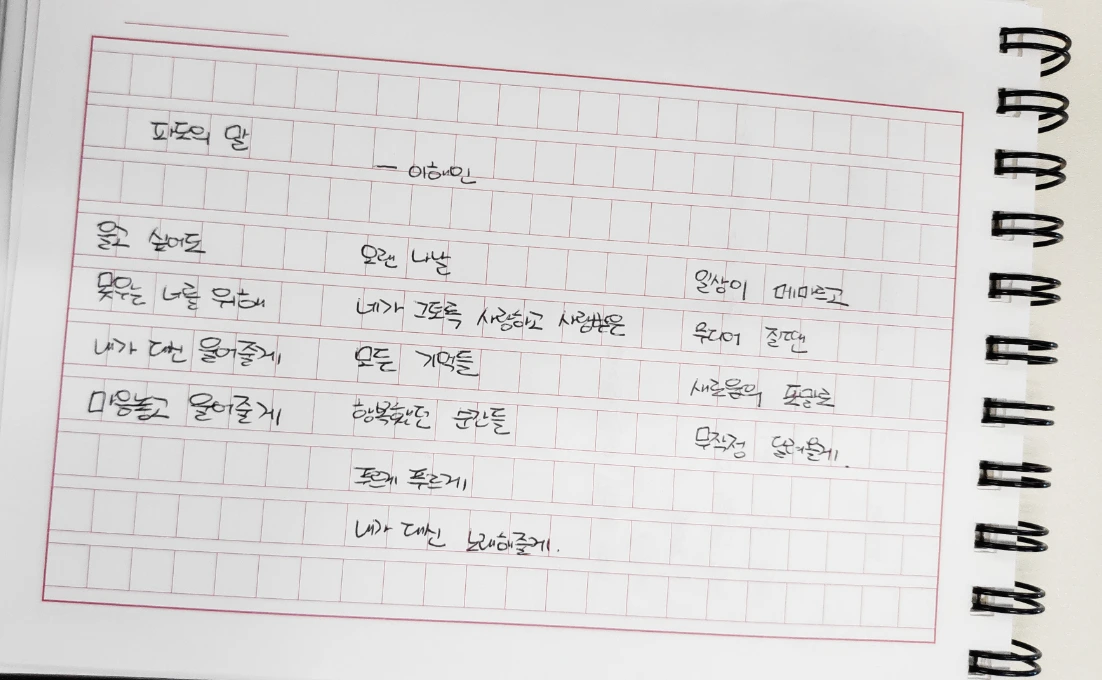 파도의 말
― 이해인
울고 싶어도
못우는 너를 위해
내가 대신 울어줄게
마음놓고 울어줄게
오랜 나날
네가 그토록 사랑하고 사랑받은
모든 기억들
행복했던 순간들
푸르게 푸르게
내가 대신 노래해줄게.
일상이 메마르고
무디어 질땐
새로움의 포말로
무작정 달려올게.